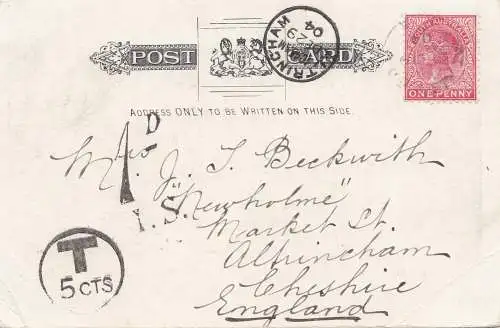 POST CARD
ALTRINCHAM
04
SOUTH AUSTRALIA
ONE PENNY
ADDRESS ONLY TO BE WRITTEN ON THIS SIDE.
1D
I.S.
Mrs J. T. Beckwith
"Newholme"
Market St.
Altrincham
Cheshire
England
T
5 CTS